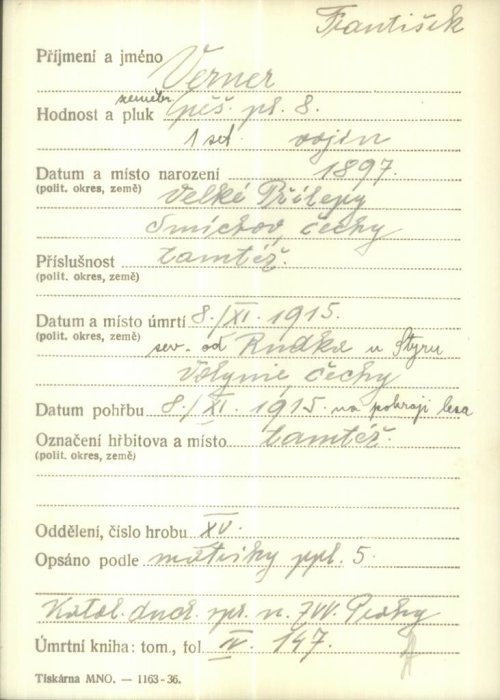 František
Příjmení a jméno Verner
zeměbr.
Hodnost a pluk pěš. pl. 8.
1 set. vojín
Datum a místo narození 1897.
(polit. okres, země) Velké Přílepy
Smíchov, čechy
Příslušnost tamtéž.
(polit. okres, země)
Datum a místo úmrtí 8./XI. 1915.
(polit. okres, země) sev. od Rudka u Styru
Volynie, čechy
Datum pohřbu 8./XI. 1915. na pokraji lesa
Označení hřbitova a místo tamtéž.
(polit. okres, země)
Oddělení, číslo hrobu XV.
Opsáno podle matriky ppl. 5.
Katol. duch. spr. n. ZVV. Prahy
Úmrtní kniha: tom., fol. IV. 147.
Tiskárna MNO. — 1163-36.